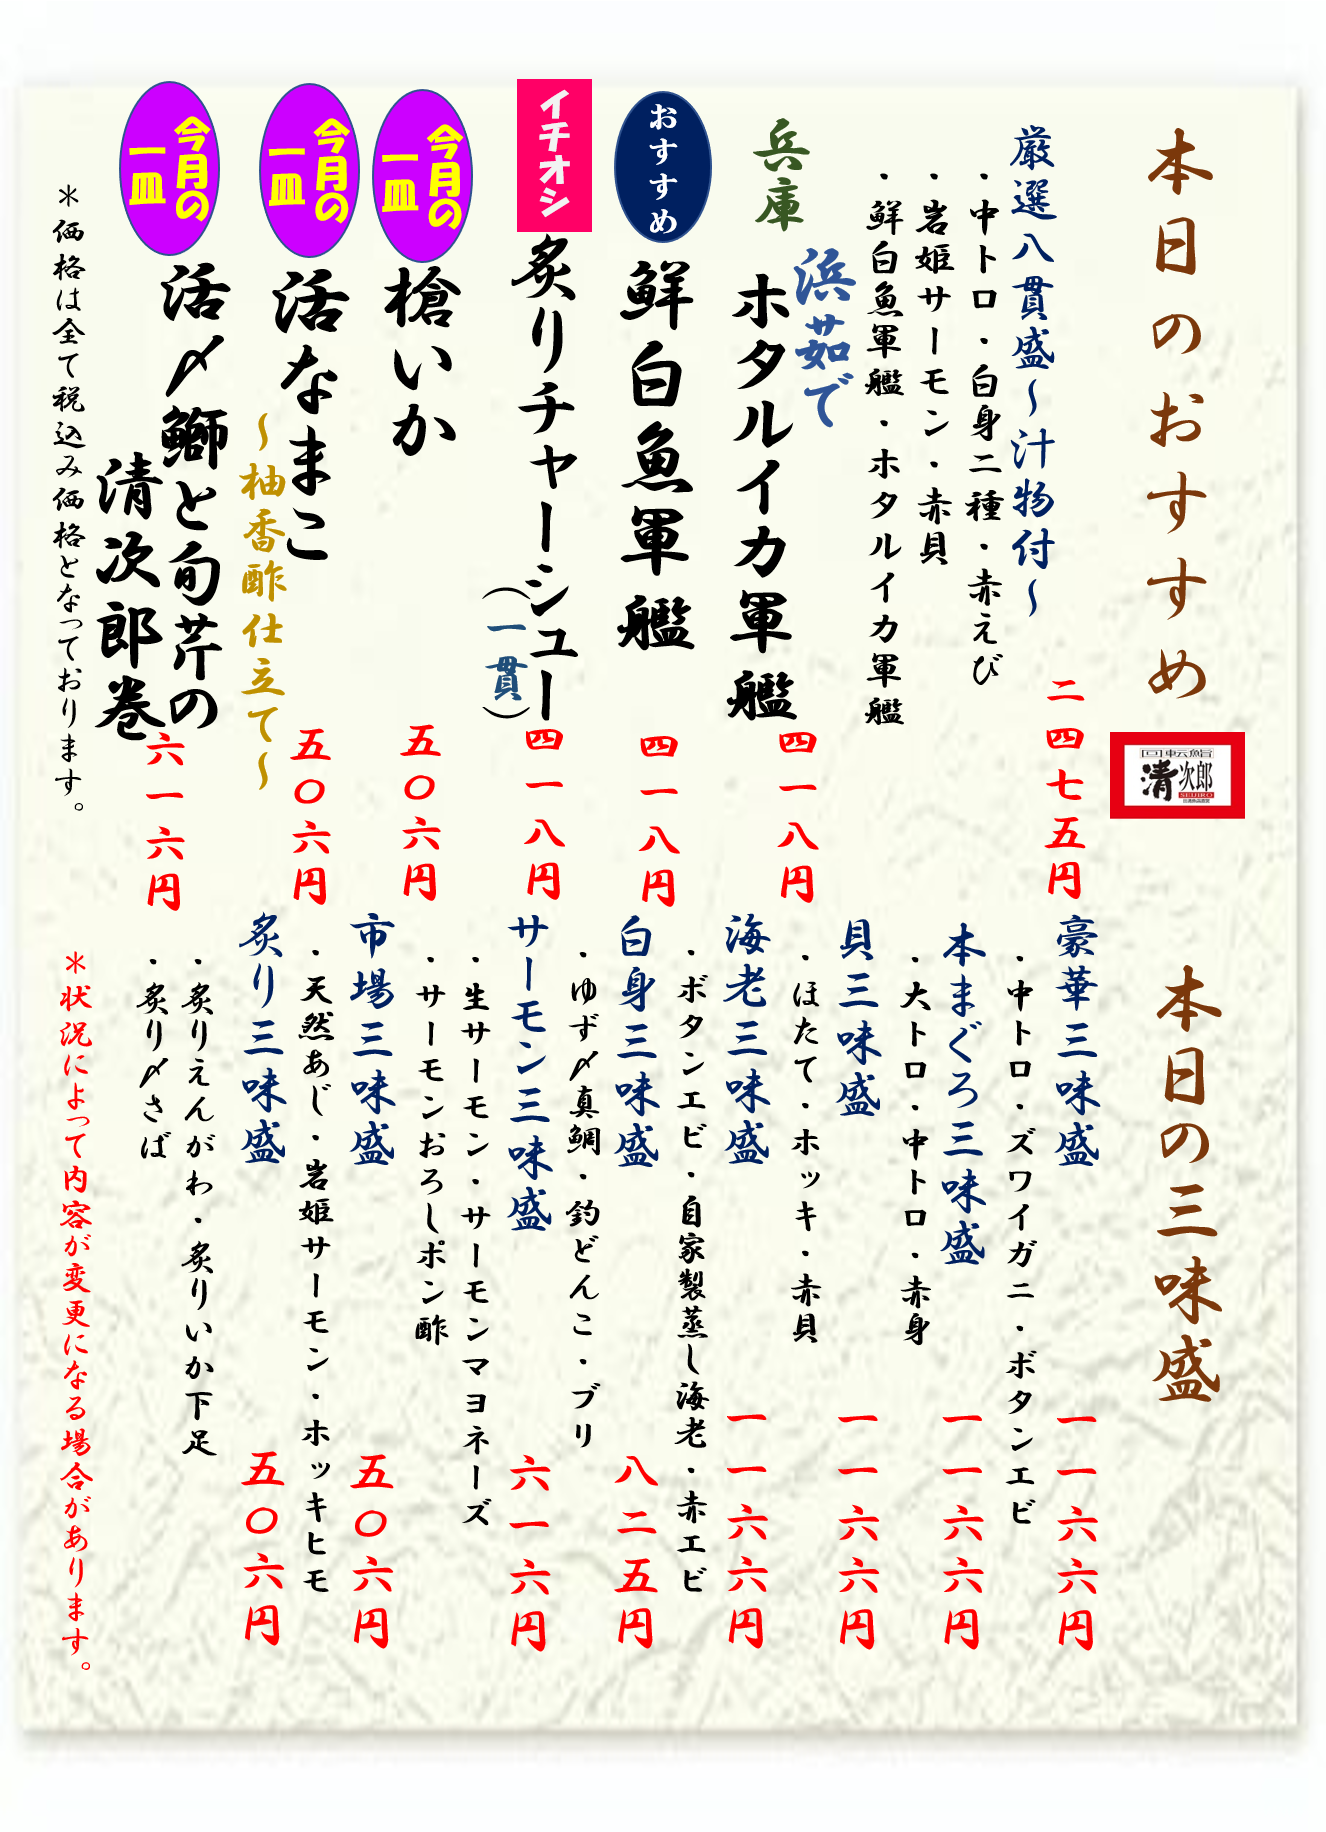 本日のおすすめ
回転鮨
清次郎
SEIJIRO
厳選八貫盛～汁物付～
二四七五円
・中トロ・白身二種・赤えび
・岩姫サーモン・赤貝
・鮮白魚軍艦・ホタルイカ軍艦
兵庫
浜茹で
ホタルイカ軍艦
四一八円
おすすめ
鮮白魚軍艦
四一八円
イチオシ
炙りチャーシュー
（一貫）
四一八円
今月の
一皿
槍いか
五〇六円
今月の
一皿
活なまこ
～柚香酢仕立て～
五〇六円
今月の
一皿
活〆鰤と旬芹の
清次郎巻
六一六円
＊価格は全て税込み価格となっております。
本日の三味盛
豪華三味盛
一一六六円
・中トロ・ズワイガニ・ボタンエビ
本まぐろ三味盛
一一六六円
・大トロ・中トロ・赤身
貝三味盛
一一六六円
・ほたて・ホッキ・赤貝
海老三味盛
一一六六円
・ボタンエビ・自家製蒸し海老・赤エビ
白身三味盛
八二五円
・ゆず〆真鯛・釣どんこ・ブリ
サーモン三味盛
六一六円
・生サーモン・サーモンマヨネーズ
・サーモンおろしポン酢
市場三味盛
五〇六円
・天然あじ・岩姫サーモン・ホッキヒモ
炙り三味盛
五〇六円
・炙りえんがわ・炙りいか下足
・炙り〆さば
＊状況によって内容が変更になる場合があります。